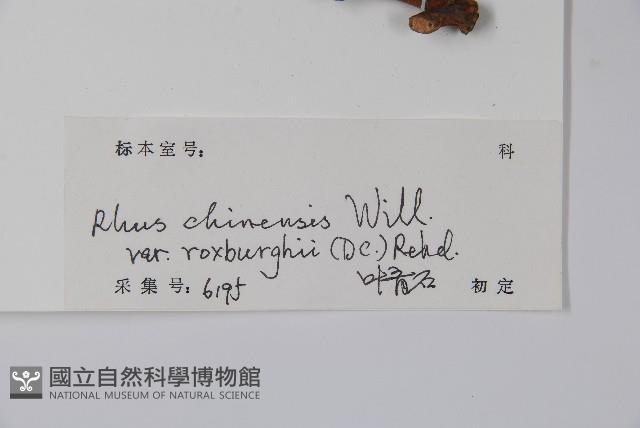 标本室号： 科
Rhus chinensis Will.
var. roxburghii (DC.) Rehd.
采集号：6195 叶育石 初定
國立自然科學博物館
NATIONAL MUSEUM OF NATURAL SCIENCE